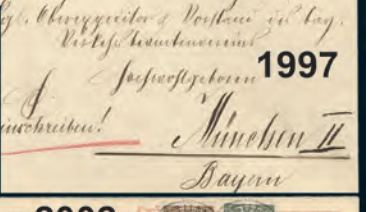 Kgl. Oberexpeditor & Vorstand des bay.
Verkehrsbeamtenvereins
Hochwohlgeboren
1997
Einschreiben!
München II
Bayern